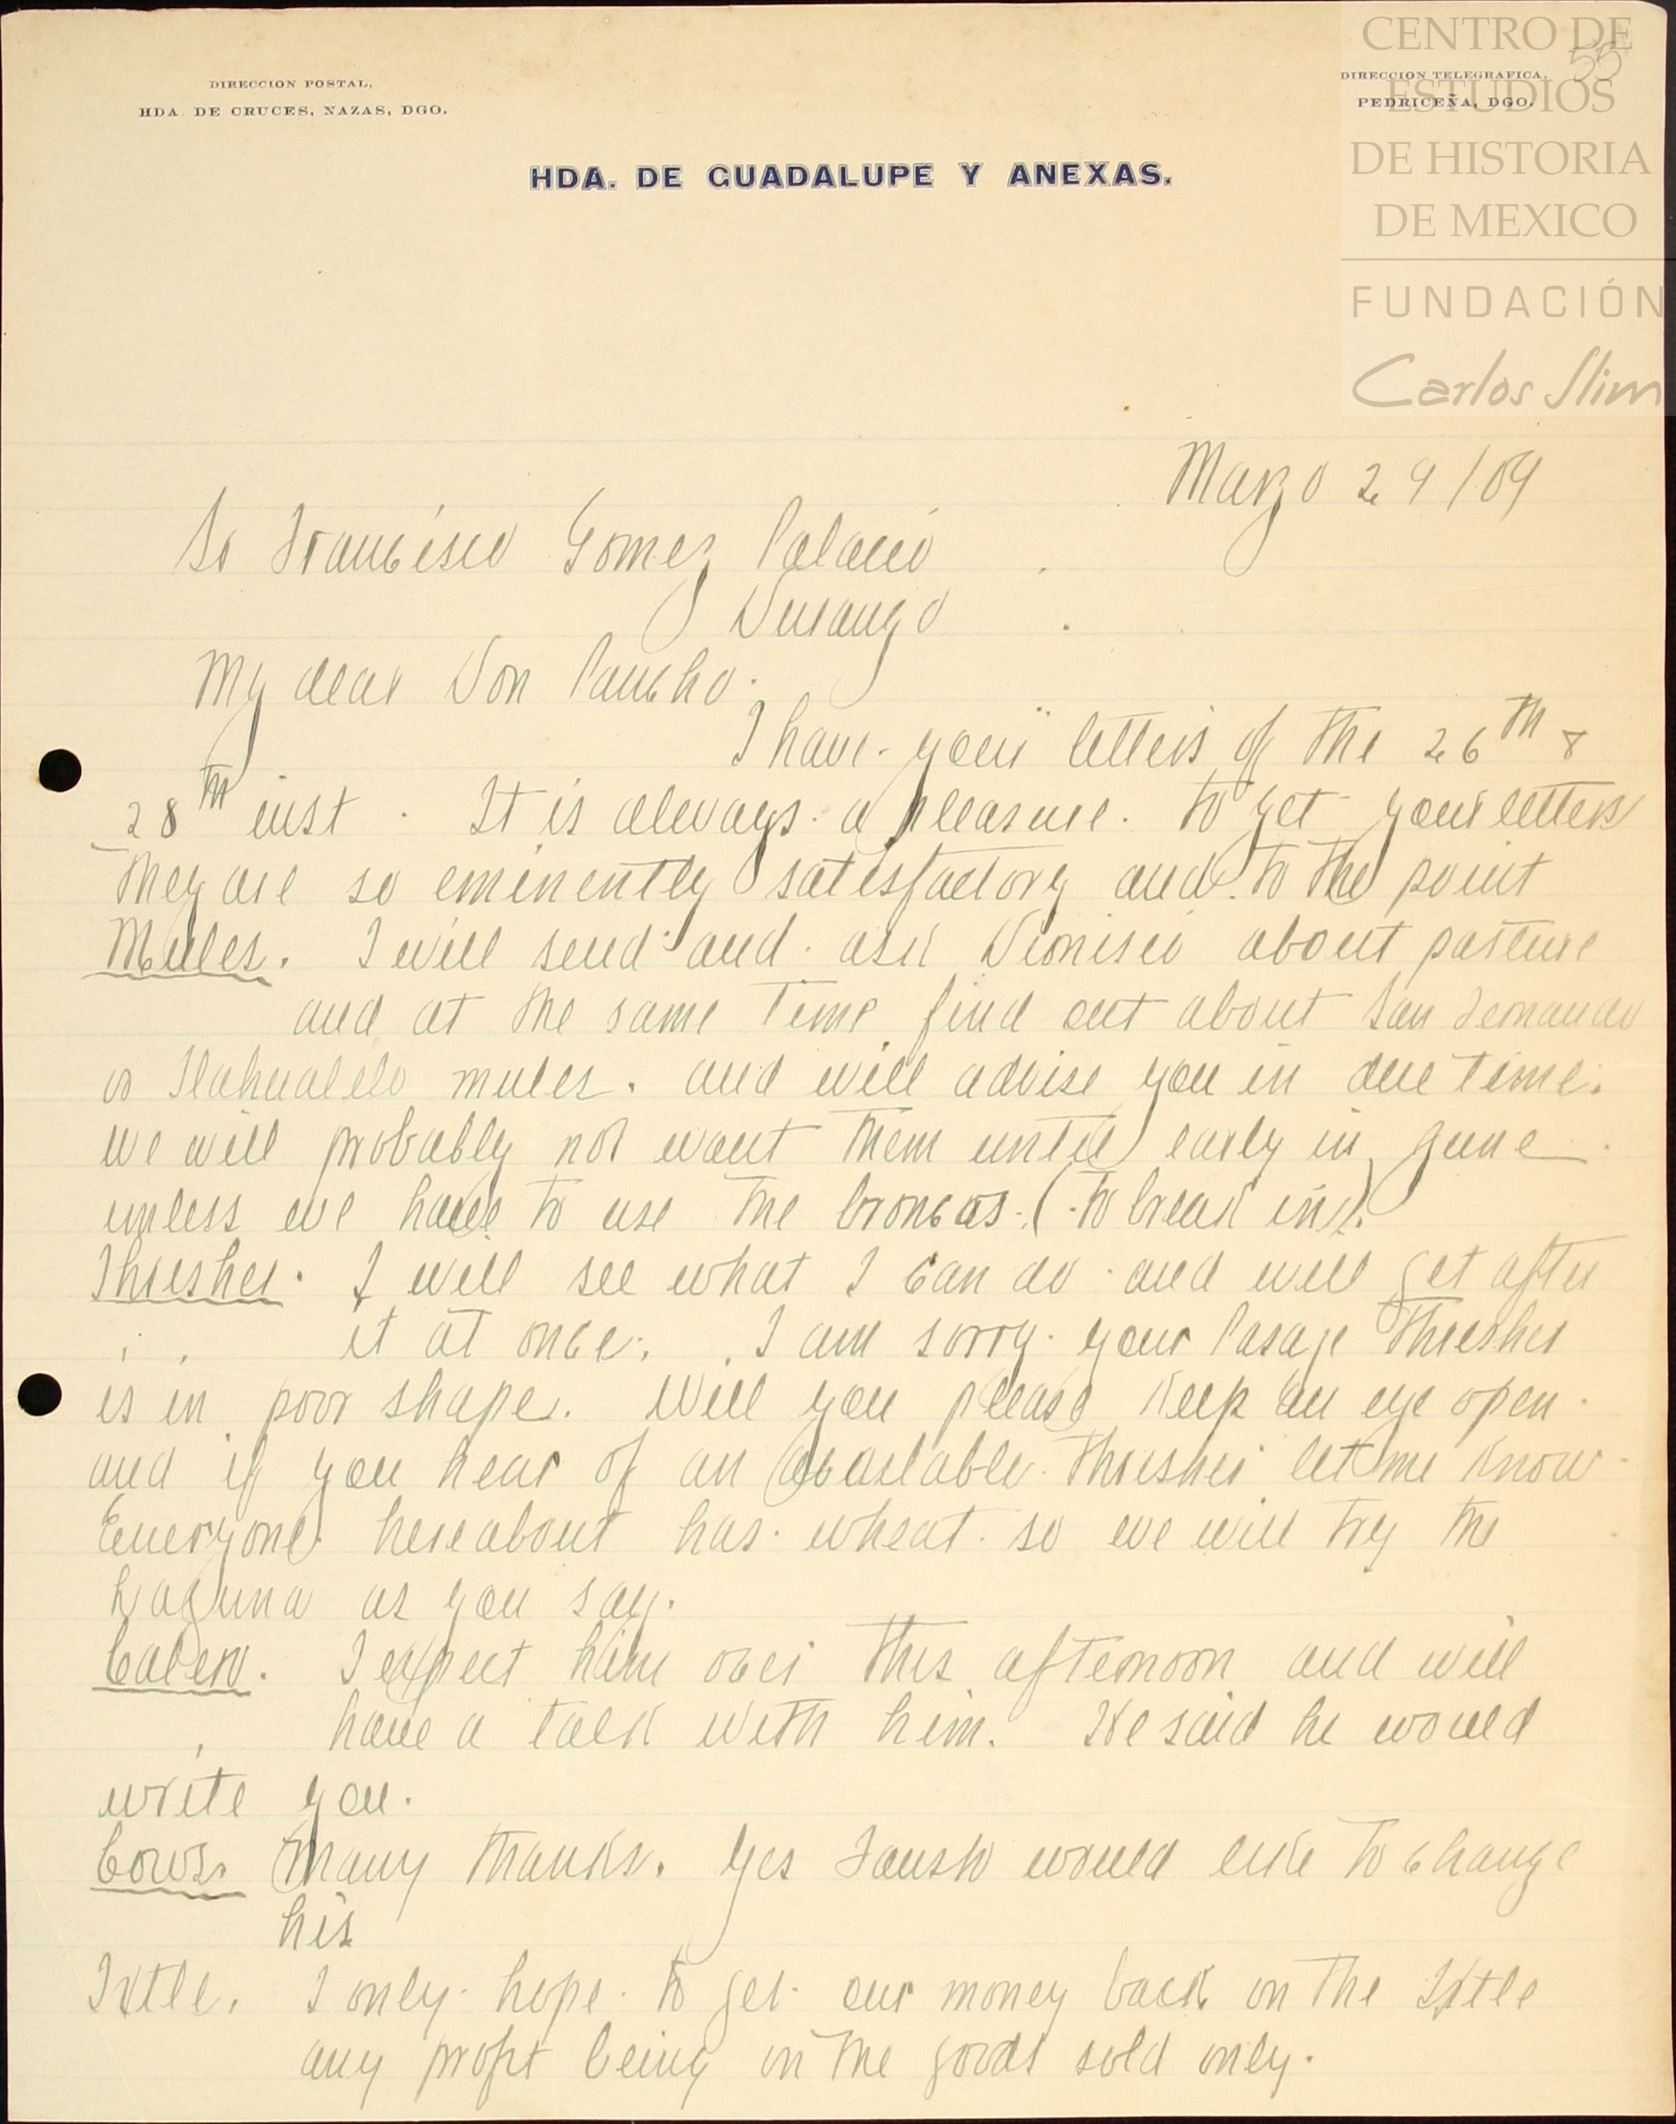 CENTRO DE
ESTUDIOS
DE HISTORIA
DE MEXICO
FUNDACIÓN
Carlos Slim
55
DIRECCION POSTAL,
HDA. DE CRUCES, NAZAS, DGO.
DIRECCION TELEGRAFICA,
PEDRICEÑA, DGO.
HDA. DE GUADALUPE Y ANEXAS.
Marzo 29/09
Sr Francisco Gomez Palacio
Durango
My dear Don Pancho.
I have your letters of the 26th &
28th inst. It is always a pleasure to get your letters
They are so eminently satisfactory and to the point
Mules. I will send and ask Dionisio about pasture
and at the same time find out about San Fernando
or Tlahualilo mules. and will advise you in due time.
we will probably not want them until early in June
unless we have to use the broncos. (to break in).
Thresher. I will see what I can do and will get after
it at once. I am sorry your Pasaje Thresher
is in poor shape. Will you please keep an eye open
and if you hear of an available Thresher let me know
Everyone hereabout has wheat so we will try the
Laguna as you say.
Calero. I expect him over this afternoon and will
have a talk with him. He said he would
write you.
Cows. Many thanks. Yes Fausto would like to change
his
Ixtle. I only hope to get our money back on the Ixtle
any profit being on the goods sold only.